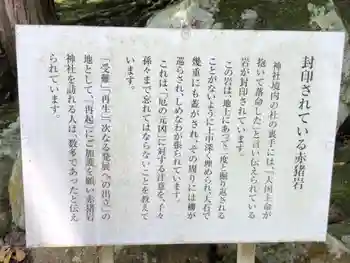 封印されている赤猪岩
神社境内の杜の裏手には『大国主命が
抱いて落命した』と言い伝えられている
岩が封印されています。
この岩は、地上にあって二度と掘り返される
ことがないように土中深く埋められ、大石で
幾重にも蓋がされ、その周りには柵が
巡らされ、しめなわが張られています。
これは、「厄の元凶」に対する注意を、子々
孫々まで忘れてはならないことを教えて
います。
「受難」、「再生」、次なる発展への出立」の
地として、「再起」にご加護を願い赤猪岩
神社を訪れる人は、数多であったと伝え
られています。